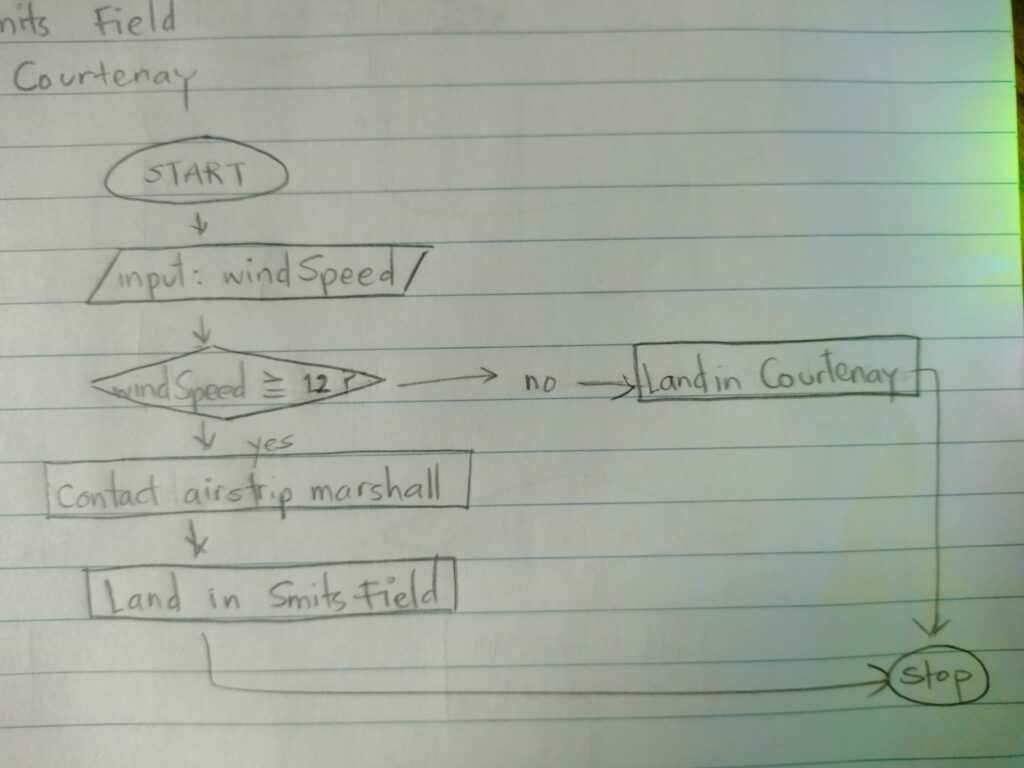 Field
Courtenay
START
input: windSpeed
windSpeed ≧ 12?
no
Land in Courtenay
yes
Contact airstrip marshall
Land in Smits Field
stop